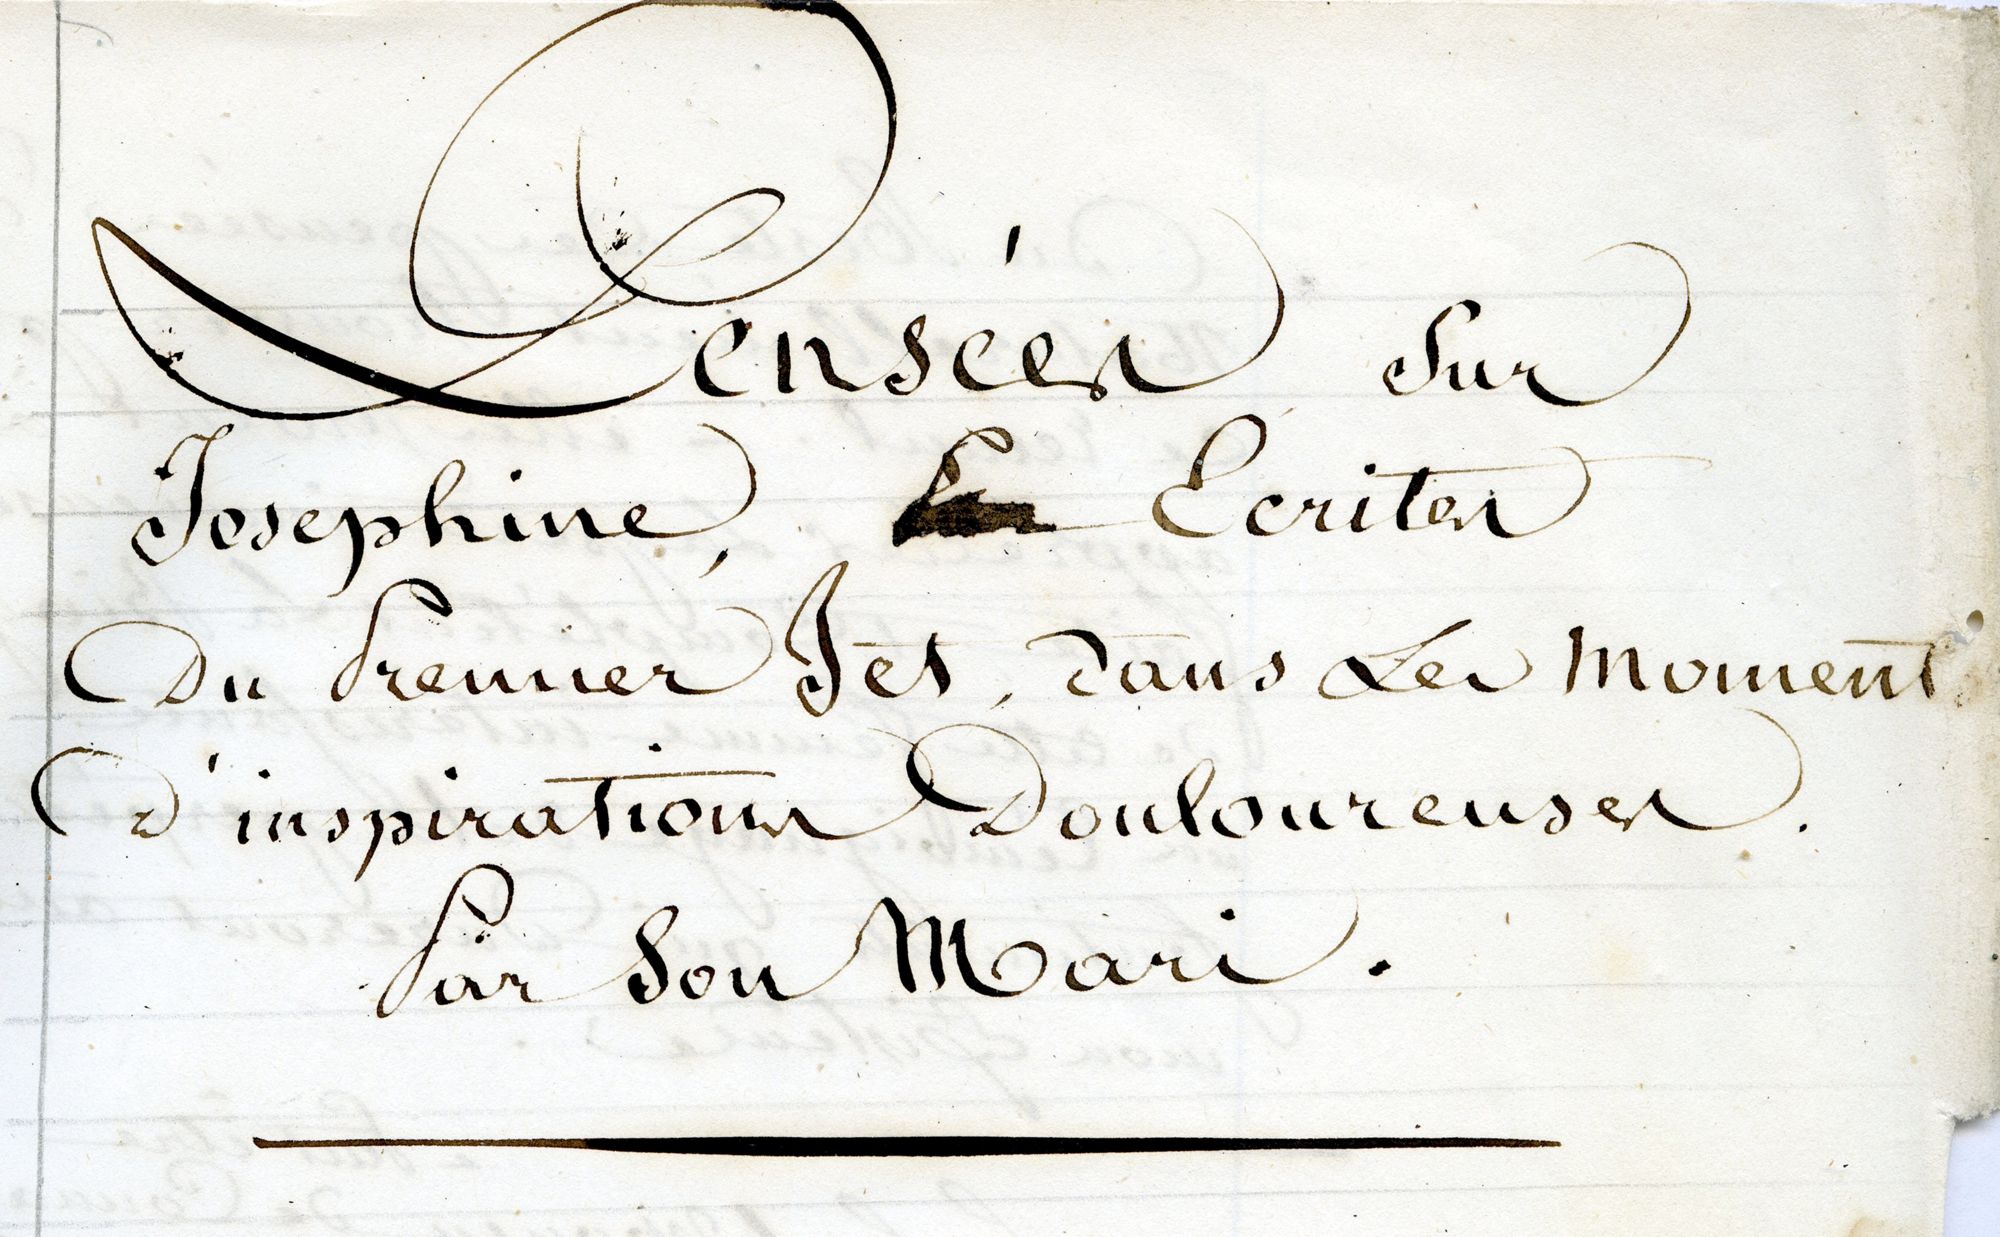 Pensées Sur
Josephine, Ecrites
Du Premier Jet, dans Les Moment
d'inspirations Douloureuses.
Par Son Mari.